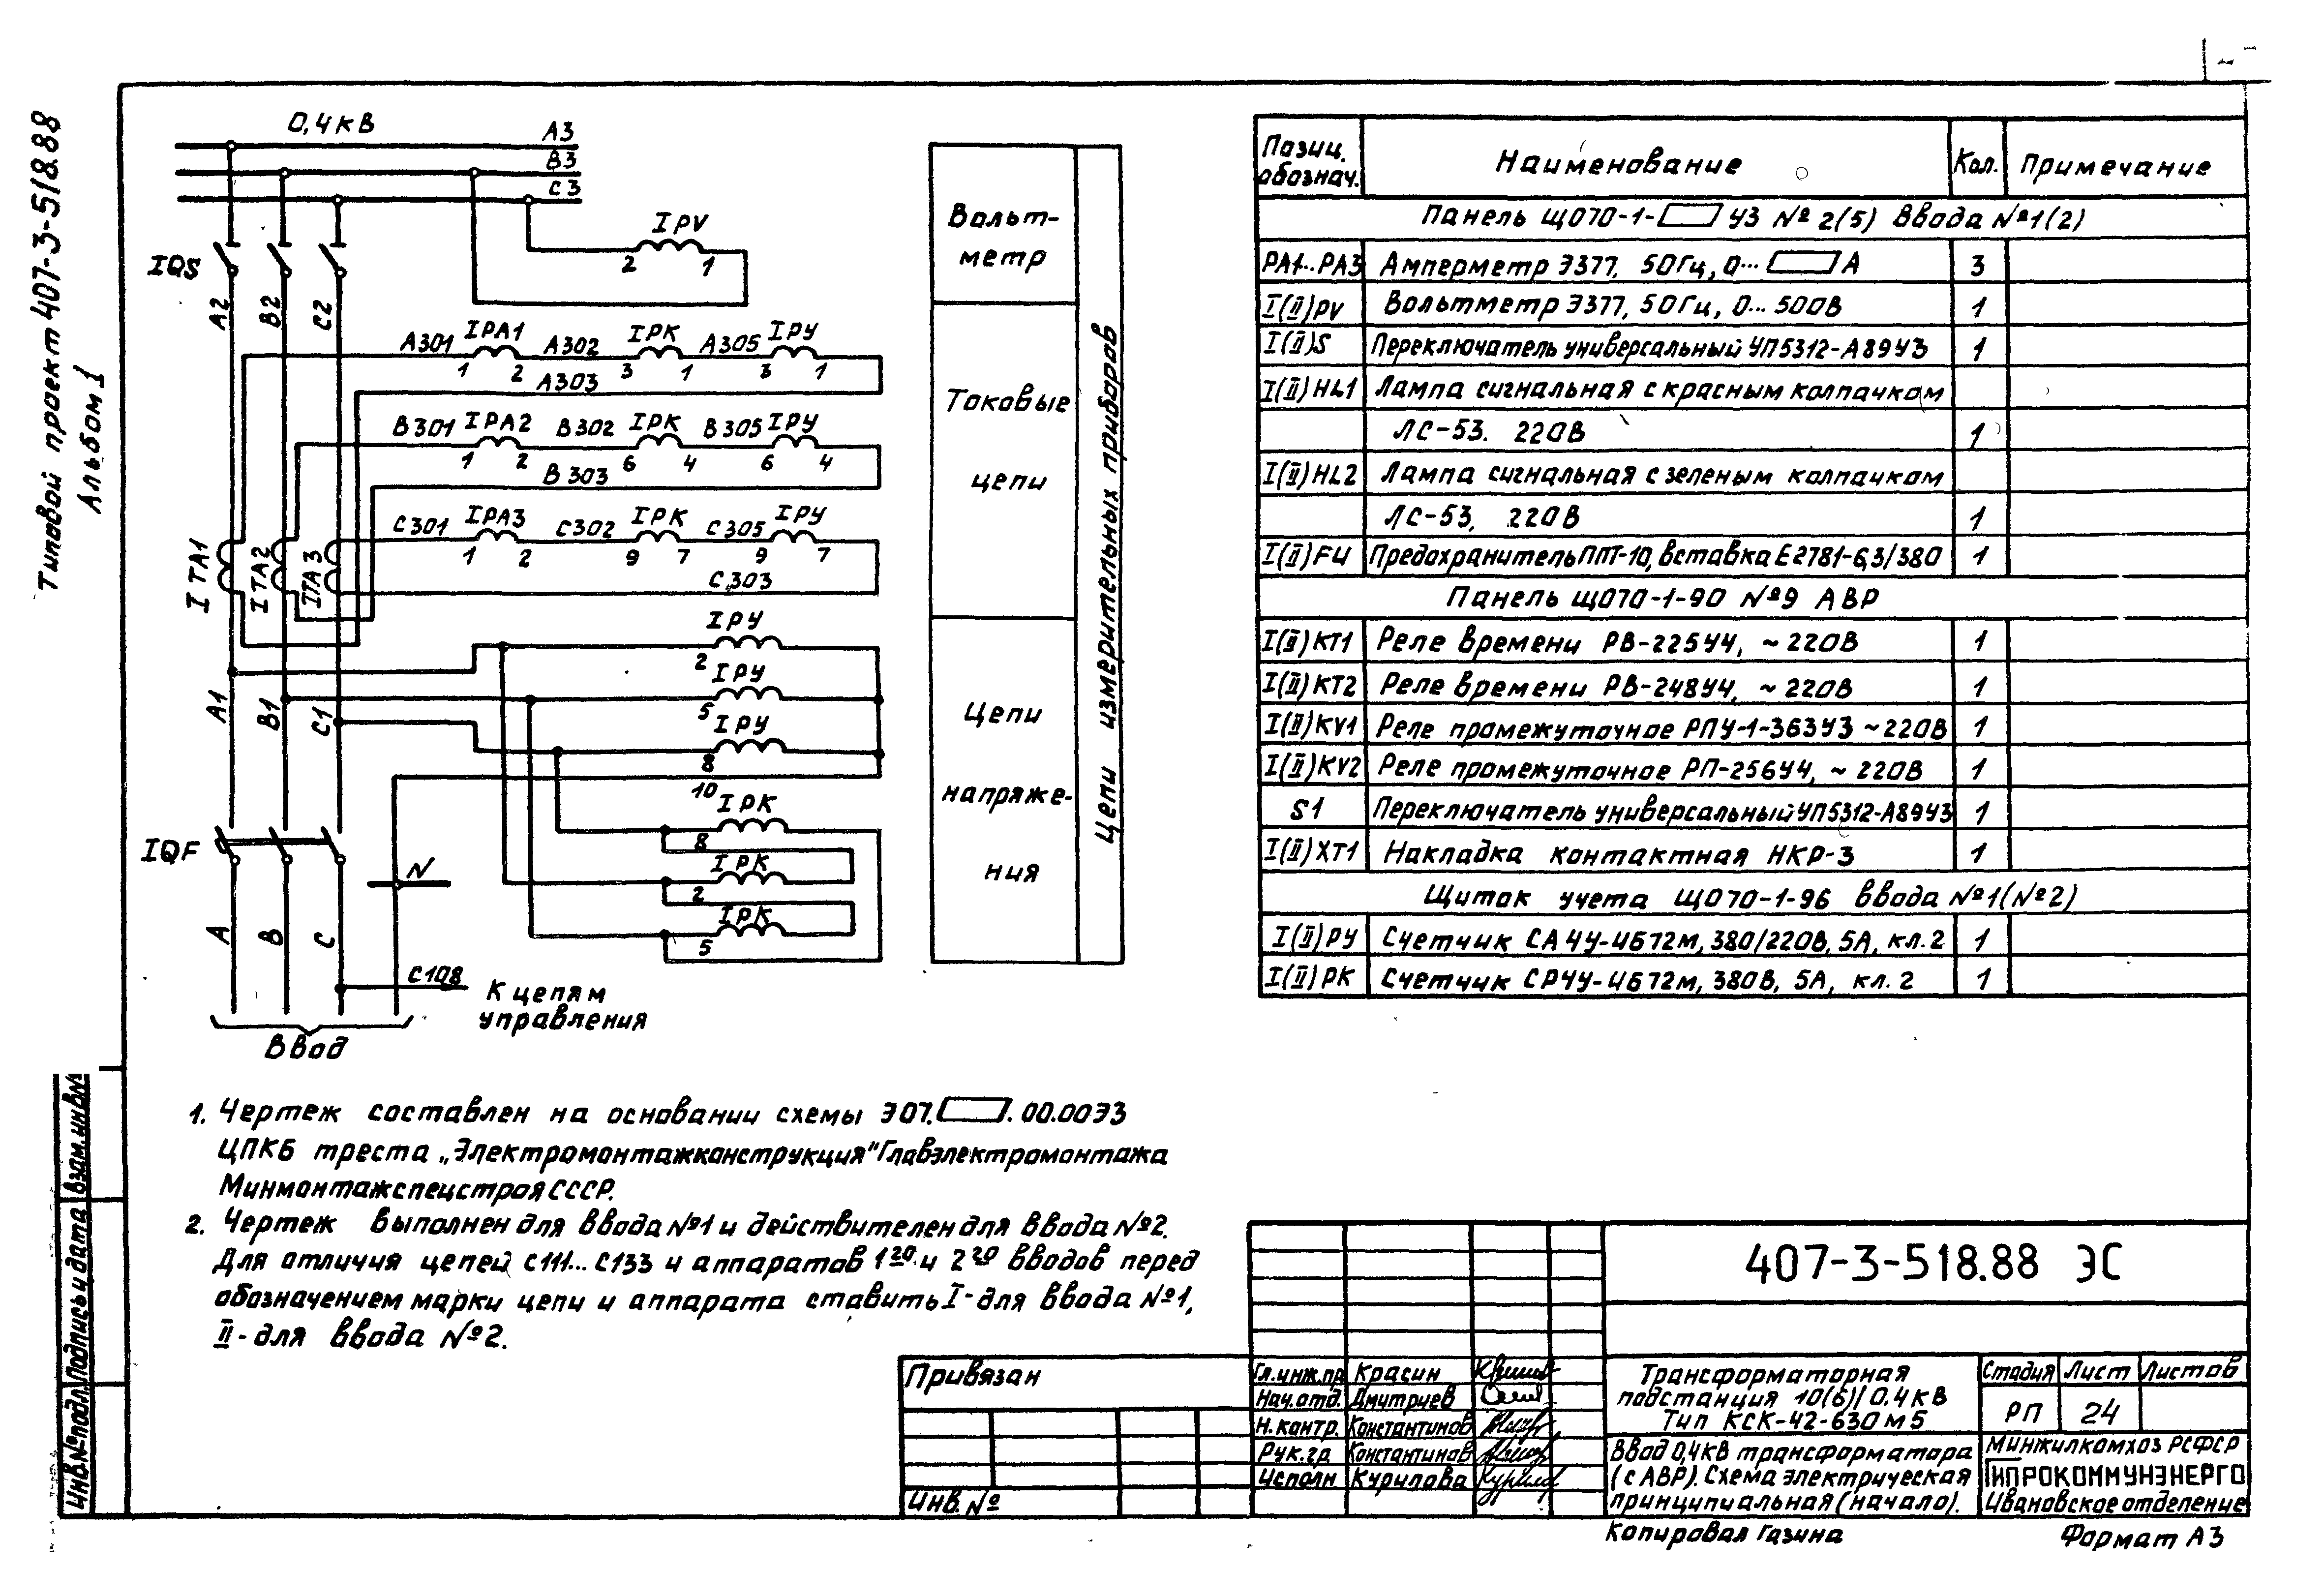 Типовой проект 407-3-518.88
Альбом 1
0,4кВ
А3
В3
С3
IPV
2 1
IQS
А2
В2
С2
А301 IPA1 А302 IРК А305 IРУ
1 2 3 1 3 1
А303
В301 IPA2 В302 IРК В305 IРУ
1 2 6 4 6 4
В303
С301 IPA3 С302 IРК С305 IРУ
1 2 9 7 9 7
С303
IТА1
IТА2
IТА3
IРУ
2
IРУ
5
IРУ
8
10
А1
В1
С1
IРК
8
IРК
2
IРК
5
IQF
N
А
В
С
С108
К цепям
управления
Ввод
Вольт-
метр
Токовые
цепи
Цепи
напряже-
ния
Цепи измерительных приборов
Позиц. обознач. Наименование Кол. Примечание
Панель ЩО70-1-  У3 №2(5) Ввода №1(2)
РА1..РА3 Амперметр Э377, 50Гц, 0...  А 3
I(II)PV Вольтметр Э377, 50Гц, 0... 500В 1
I(II)S Переключатель универсальный УП5312-А89У3 1
I(II)HL1 Лампа сигнальная с красным колпачком
ЛС-53. 220В 1
I(II)HL2 Лампа сигнальная с зеленым колпачком
ЛС-53, 220В 1
I(II)FU Предохранитель ППТ-10, вставка Е2781-6,3/380 1
Панель ЩО70-1-90 №9 АВР
I(II)КТ1 Реле времени РВ-225У4, ~220В 1
I(II)КТ2 Реле времени РВ-248У4, ~220В 1
I(II)KV1 Реле промежуточное РПУ-1-363У3 ~220В 1
I(II)KV2 Реле промежуточное РП-256У4, ~220В 1
S1 Переключатель универсальный УП5312-А89У3 1
I(II)ХТ1 Накладка контактная НКР-3 1
Щиток учета ЩО70-1-96 ввода №1(№2)
I(II)РУ Счетчик СА4У-И672м, 380/220В, 5А, кл.2 1
I(II)РК Счетчик СР4У-И672м, 380В, 5А, кл.2 1
1. Чертеж составлен на основании схемы Э07.  .00.00Э3
ЦПКБ треста „Электромонтажконструкция" Главэлектромонтажа
Минмонтажспецстроя СССР.
2. Чертеж выполнен для ввода №1 и действителен для ввода №2.
Для отличия цепей С111...С133 и аппаратов 1го и 2го вводов перед
обозначением марки цепи и аппарата ставить I-для ввода №1,
II-для ввода №2.
Инв.№подл. Подпись и дата Взам.инв№
Привязан
Инв.№
407-3-518.88 ЭС
Гл.инж.пр Красин
Нач.отд. Дмитриев
Н.контр. Константинов
Рук.гр. Константинов
Исполн. Курилова
Трансформаторная
подстанция 10(6)/0,4кВ
Тип КСК-42-630м5
Стадия Лист Листов
РП 24
Ввод 0,4кВ трансформатора
(с АВР). Схема электрическая
принципиальная (начало).
Минжилкомхоз РСФСР
ГИПРОКОММУНЭНЕРГО
Ивановское отделение
Копировал Газина
Формат А3